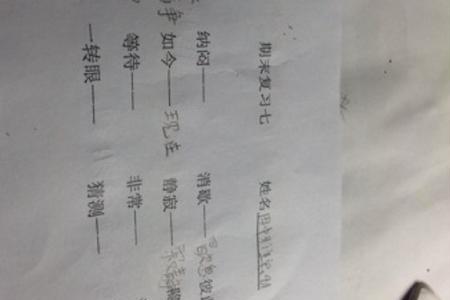 期末复习七 姓名
纳闷—— 消歇——
如今——现在 静寂——
等待—— 非常——
一转眼—— 猜测——